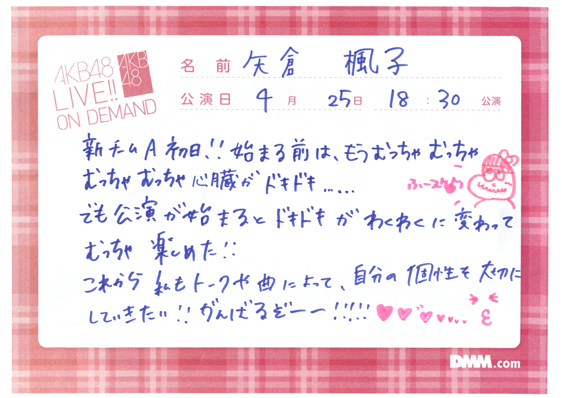 AKB48
LIVE!!
ON DEMAND
AKB
48
名前 矢倉 楓子
公演日 4月 25日 18:30 公演
新チームA初日!!始まる前は、もうむっちゃむっちゃ
むっちゃむっちゃ心臓がドキドキ……
でも公演が始まるとドキドキがわくわくに変わって
むっちゃ楽しめた!!
これから私もトークや曲によって、自分の個性を大切に
していきたい!!がんばるぞーー!!!!!
DMM.com